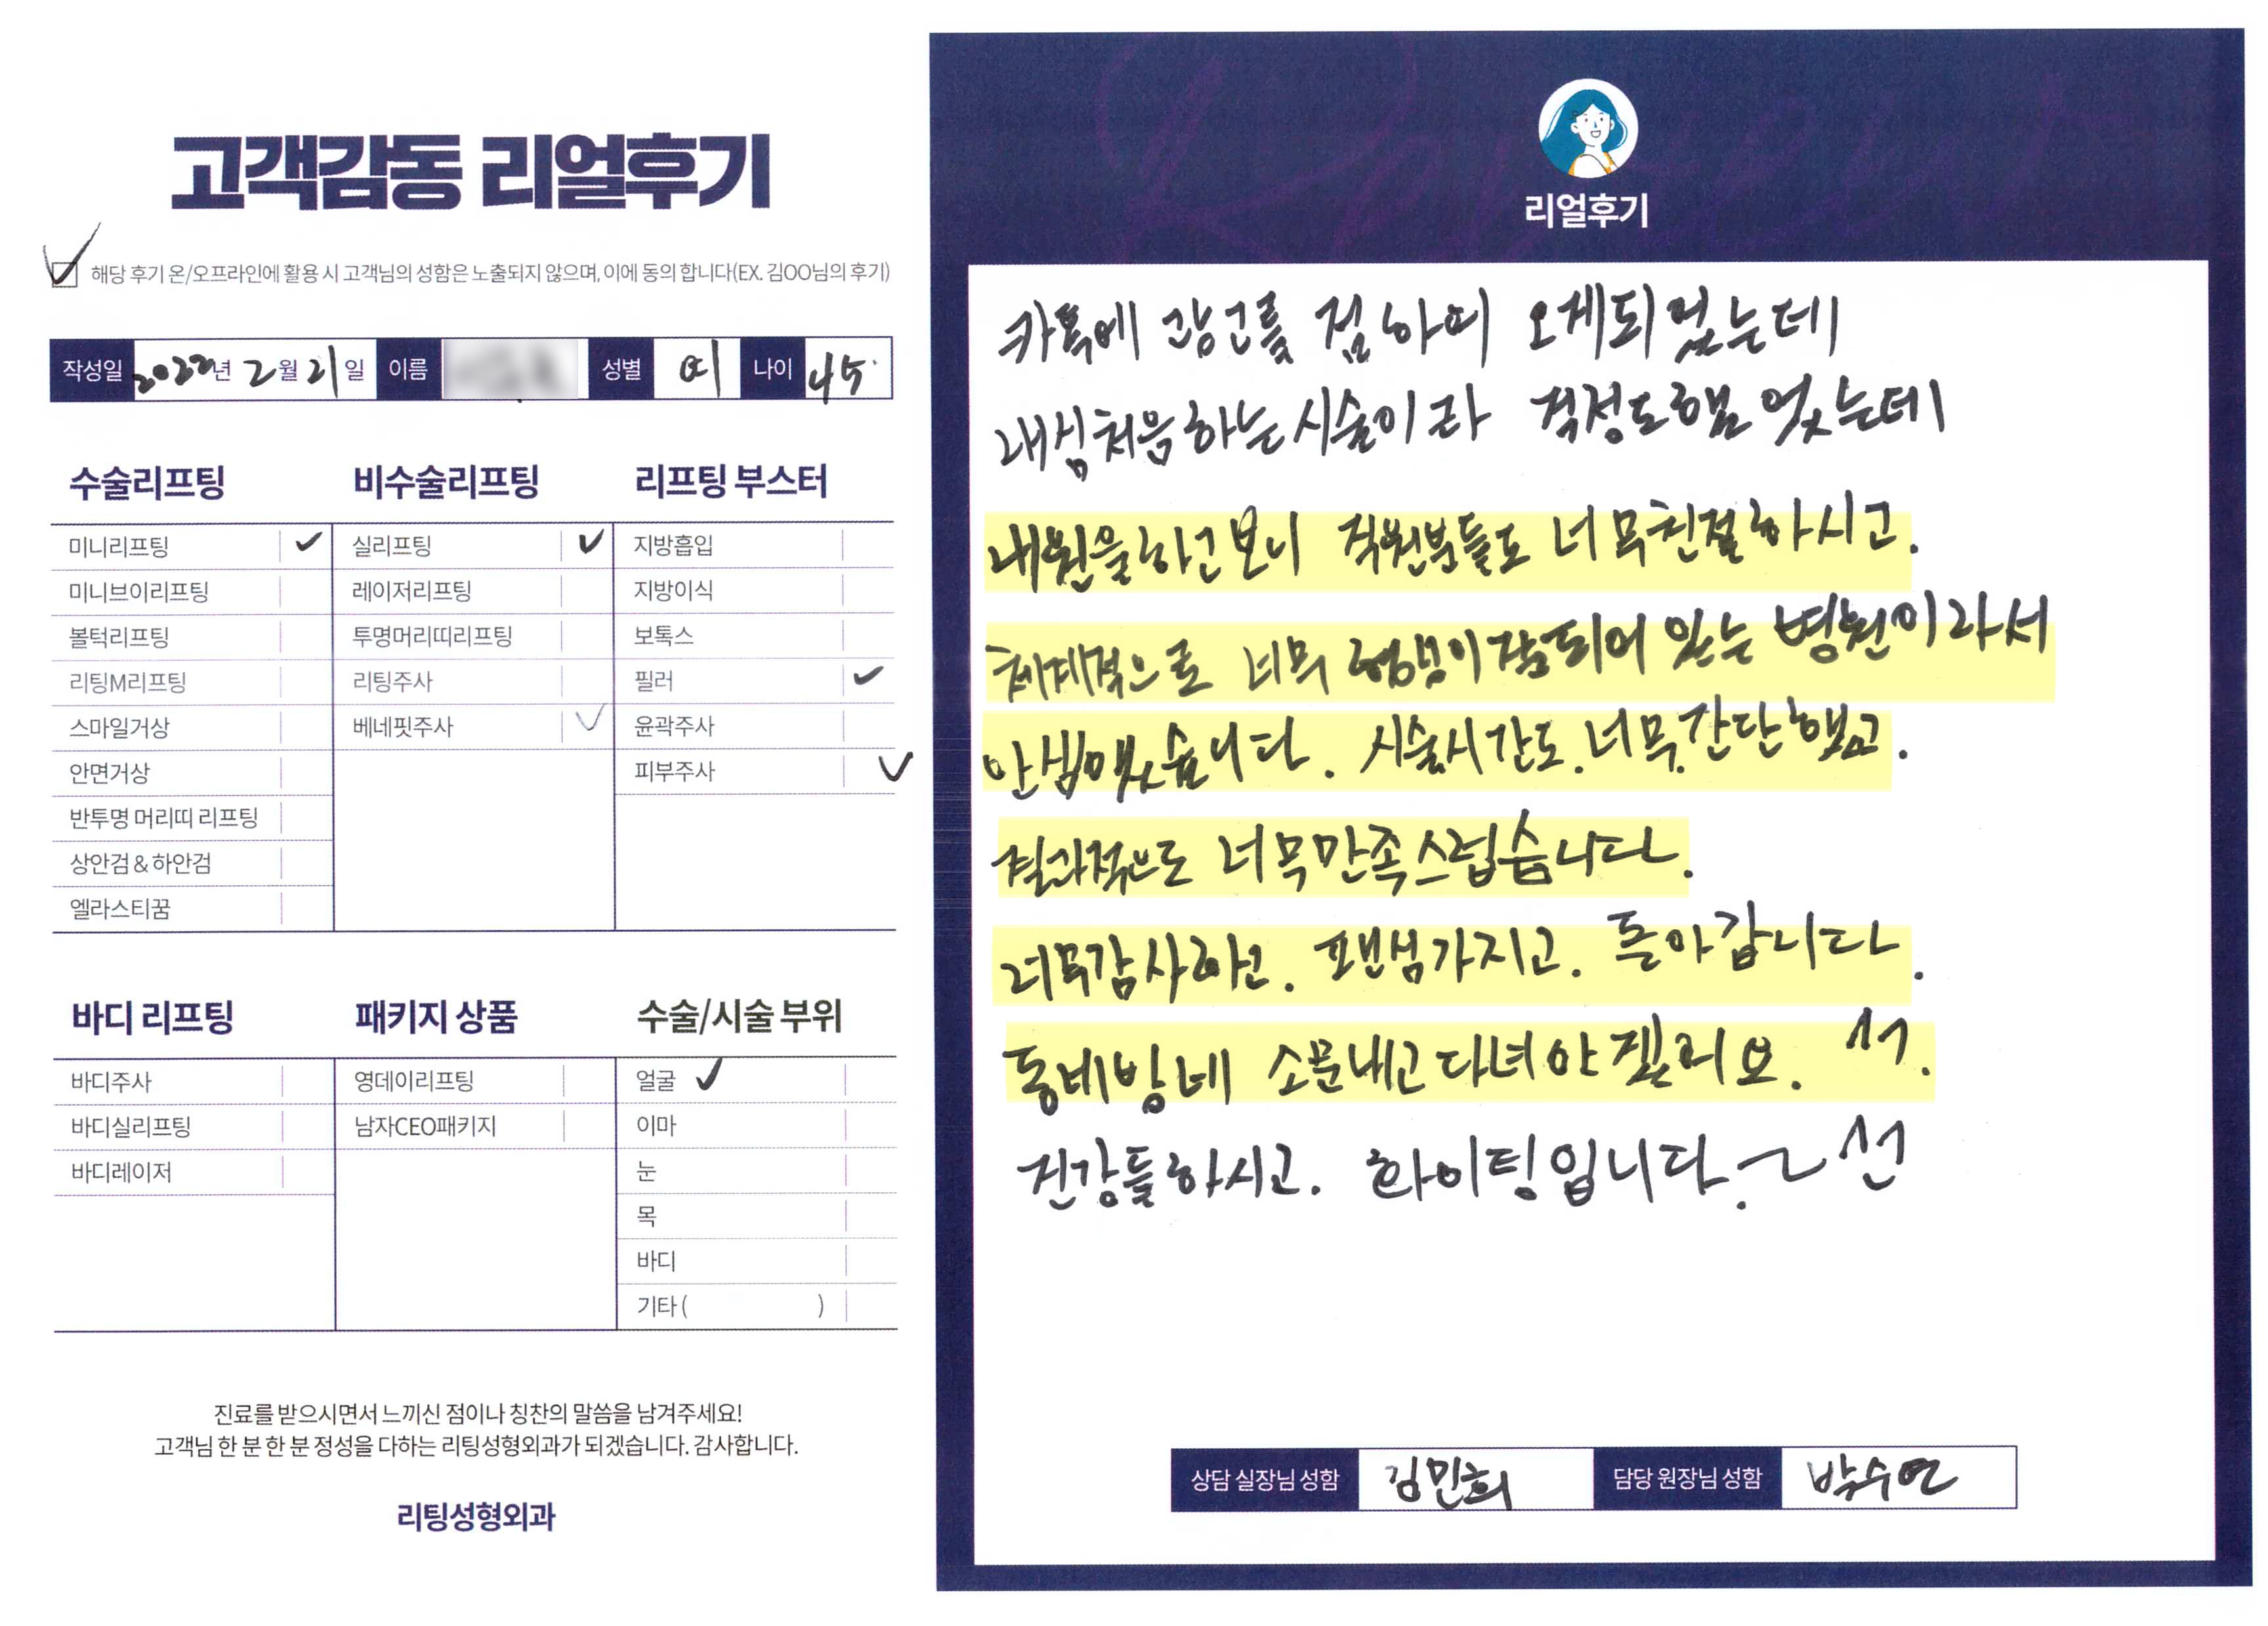 고객감동 리얼후기
해당 후기 온/오프라인에 활용 시 고객님의 성함은 노출되지 않으며, 이에 동의 합니다(EX. 김OO님의 후기)
작성일 2022년 2월 21일 이름 성별 여 나이 45
수술리프팅 비수술리프팅 리프팅 부스터
미니리프팅 실리프팅 지방흡입
미니브이리프팅 레이저리프팅 지방이식
볼턱리프팅 투명머리띠리프팅 보톡스
리팅M리프팅 리팅주사 필러
스마일거상 베네핏주사 윤곽주사
안면거상 피부주사
반투명 머리띠 리프팅
상안검 & 하안검
엘라스티꿈
바디 리프팅 패키지 상품 수술/시술 부위
바디주사 영데이리프팅 얼굴
바디실리프팅 남자CEO패키지 이마
바디레이저 눈
목
바디
기타 ( )
진료를 받으시면서 느끼신 점이나 칭찬의 말씀을 남겨주세요!
고객님 한 분 한 분 정성을 다하는 리팅성형외과가 되겠습니다. 감사합니다.
리팅성형외과
리얼후기
카톡에 광고를 접하여 오게되었는데
내심처음하는시술이라 걱정도했었는데
내원을하고보니 직원분들도 너무친절하시고.
체계적으로 너무 잘되어 있는 병원이라서
안심했습니다. 시술시간도. 너무. 간단했고.
결과적으로 너무만족스럽습니다.
너무감사하고. 팬심가지고. 돌아갑니다.
동네방네 소문내고다녀야
건강들하시고. 화이팅입니다.~
상담 실장님 성함 김민희 담당 원장님 성함 박수연